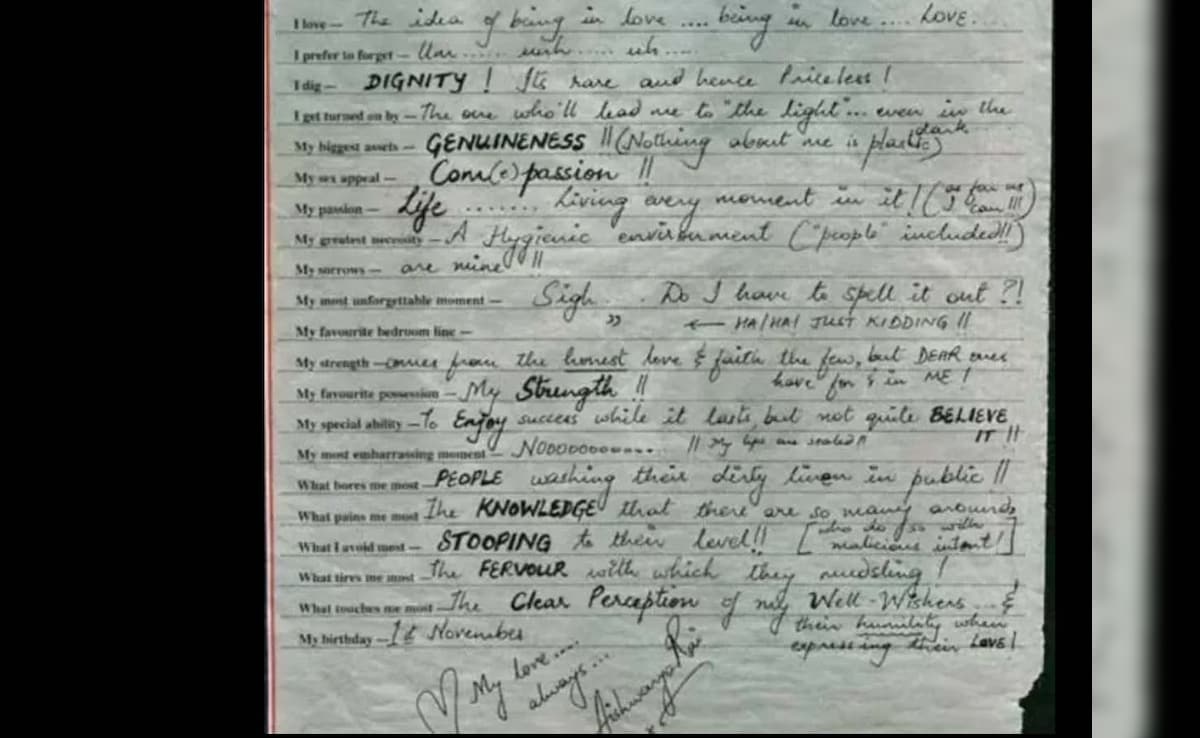 I love — The idea of being in love .... being in love .... LOVE.
I prefer to forget — Um ...... umh ..... uh .....
I dig — DIGNITY ! Its rare and hence Priceless !
I get turned on by — The one who'll lead me to "the light"... even in the dark
My biggest assets — GENUINENESS !! (Nothing about me is plastic)
My sex appeal — Com(e)passion !!
My passion — Life ....... Living every moment in it ! (as far as I can !!!)
My greatest necessity — A Hygienic environment ("people" included!!)
My sorrows — are mine !!
My most unforgettable moment — Sigh . . Do I have to spell it out ?!
My favourite bedroom line — " ← HA! HA! JUST KIDDING !!
My strength — comes from the honest love & faith the few, but DEAR ones have for & in ME !
My favourite possession — My Strength !!
My special ability — To Enjoy success while it lasts, but not quite BELIEVE IT !!
My most embarrassing moment — NOOOOOOOO.... !! My lips are sealed !!
What bores me most — PEOPLE washing their dirty linen in public !!
What pains me most — The KNOWLEDGE that there are so many around,
What I avoid most — STOOPING to their level!! [who do so with malicious intent!]
What tires me most — The FERVOUR with which they mudsling !
What touches me most — The Clear Perception of my Well-Wishers ... & their humility when expressing their LOVE !
My birthday — 1st November
My love.... always...
Aishwarya Rai